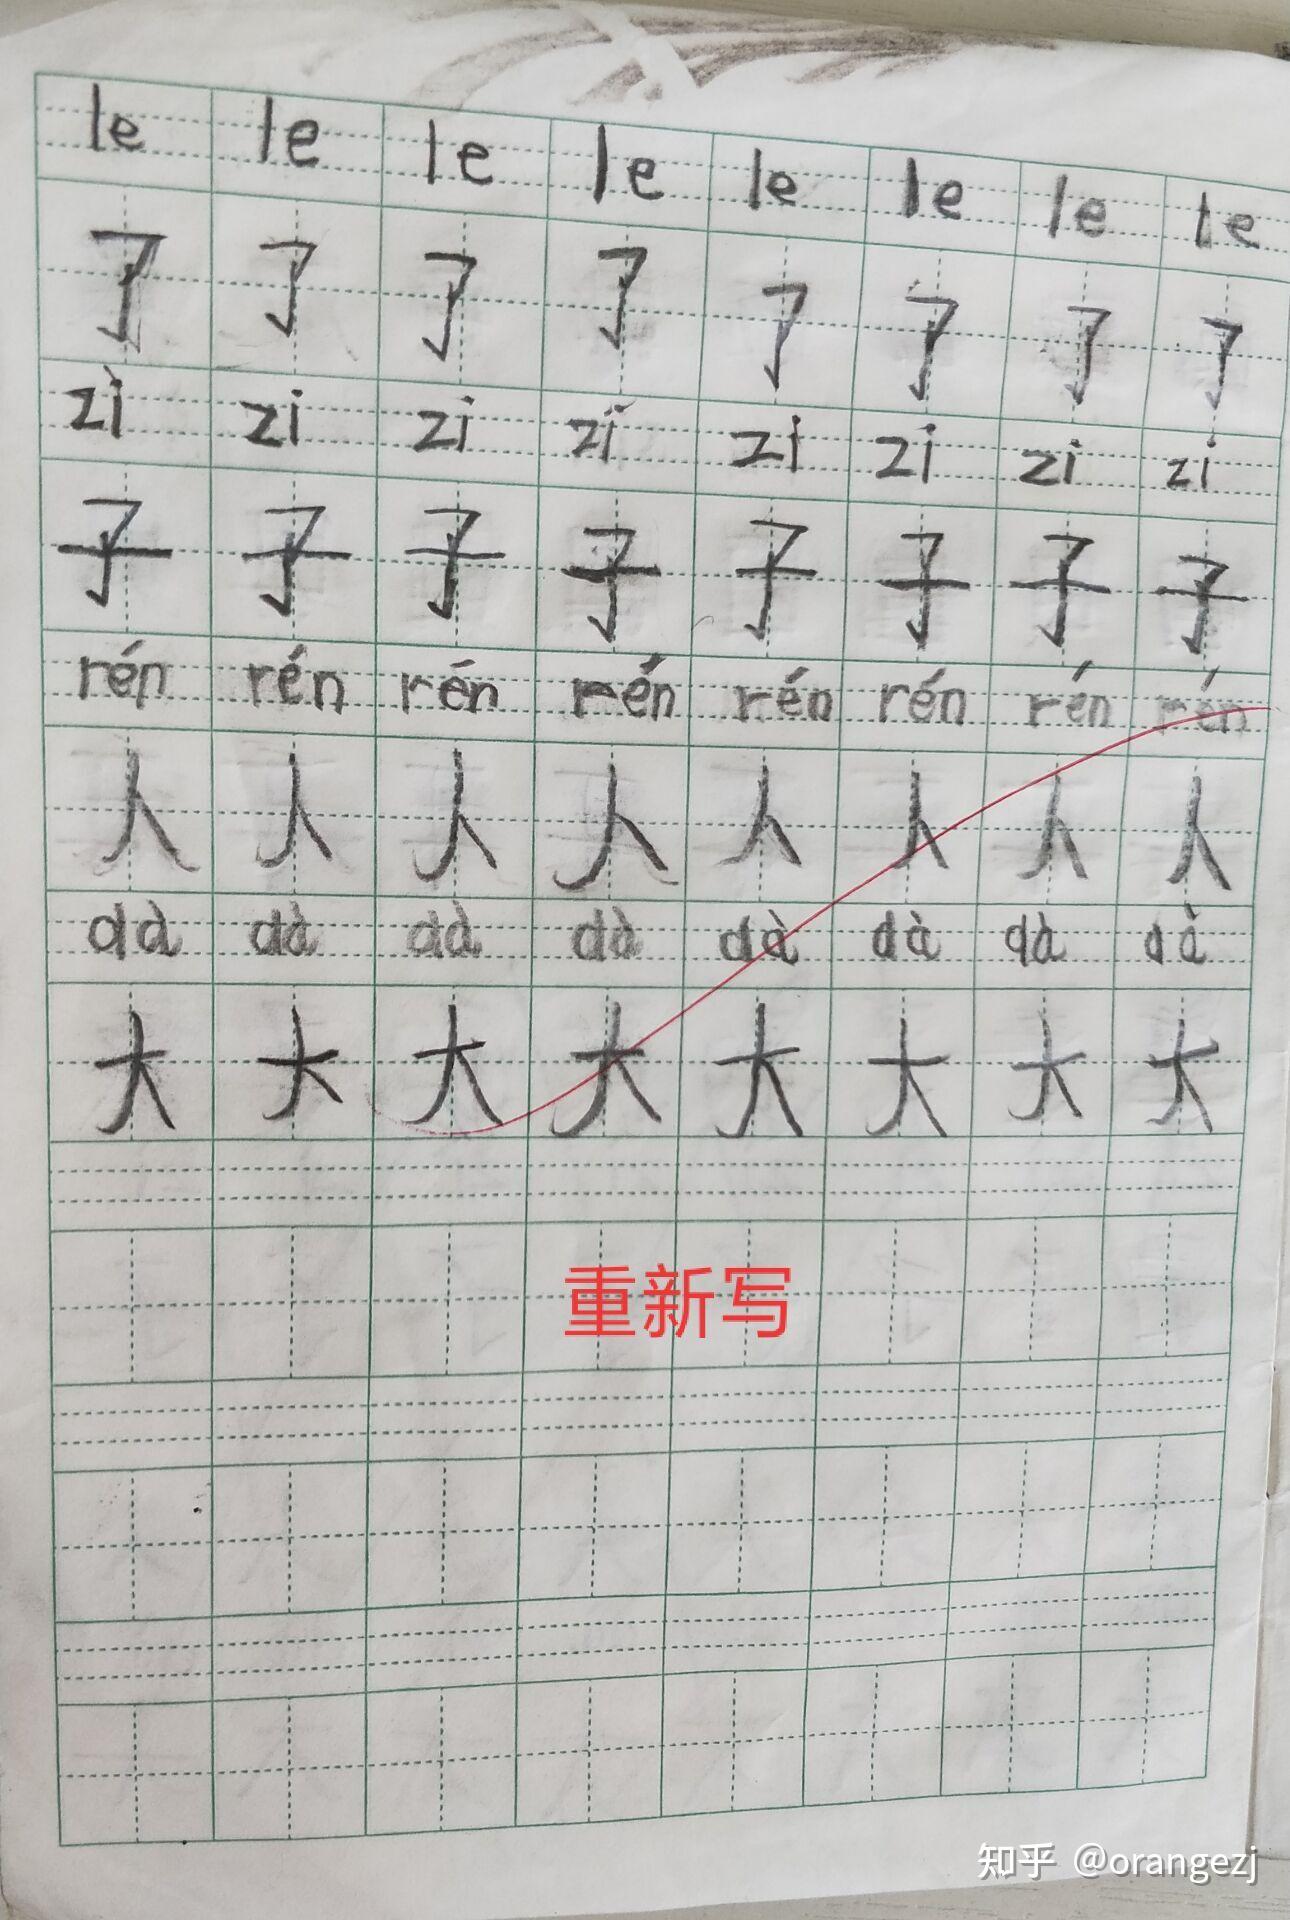 le le le le le le le le
了 了 了 了 了 了 了 了
zì zi zi zi zi zi zi zi
子 子 子 子 子 子 子 子
rén rén rén rén rén rén rén rén
人 人 人 人 人 人 人 人
dà dà dà dà dà dà dà dà
大 大 大 大 大 大 大 大
重新写
知乎 @orangezj